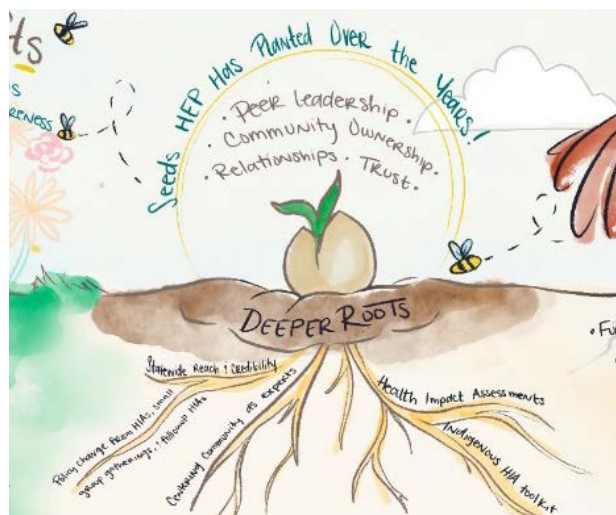 ts
s
reness
Seeds HEP Has Planted Over the Years!
• Peer Leadership •
• Community Ownership •
• Relationships • Trust •
DEEPER ROOTS
Statewide Reach & Credibility
Policy change from HIAs, small
group gatherings, & followup HIAs
Centering Community as experts
Health Impact Assessments
Indigenous HIA toolkit
• Fu